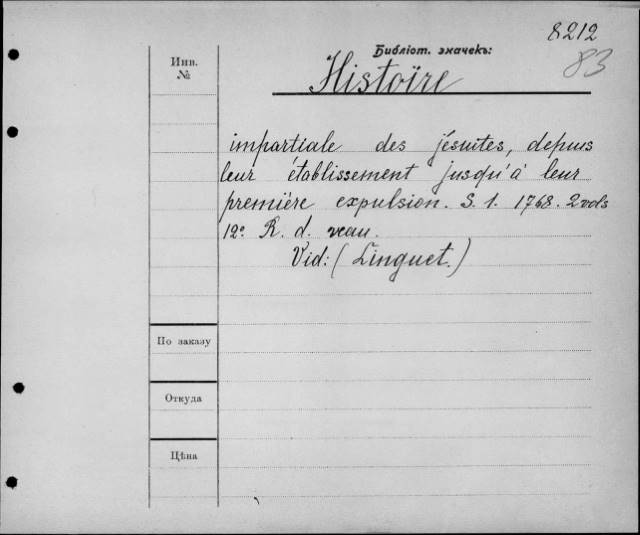 8212
Библіот. значекъ:
83
Инв.
№
Histoïre
impartiale des jésuites, depuis
leur établissement jusqu'à leur
première expulsion. S. l. 1768. 2 vols
12º R. d. veau.
Vid: (Linguet.)
По заказу
Откуда
Цѣна